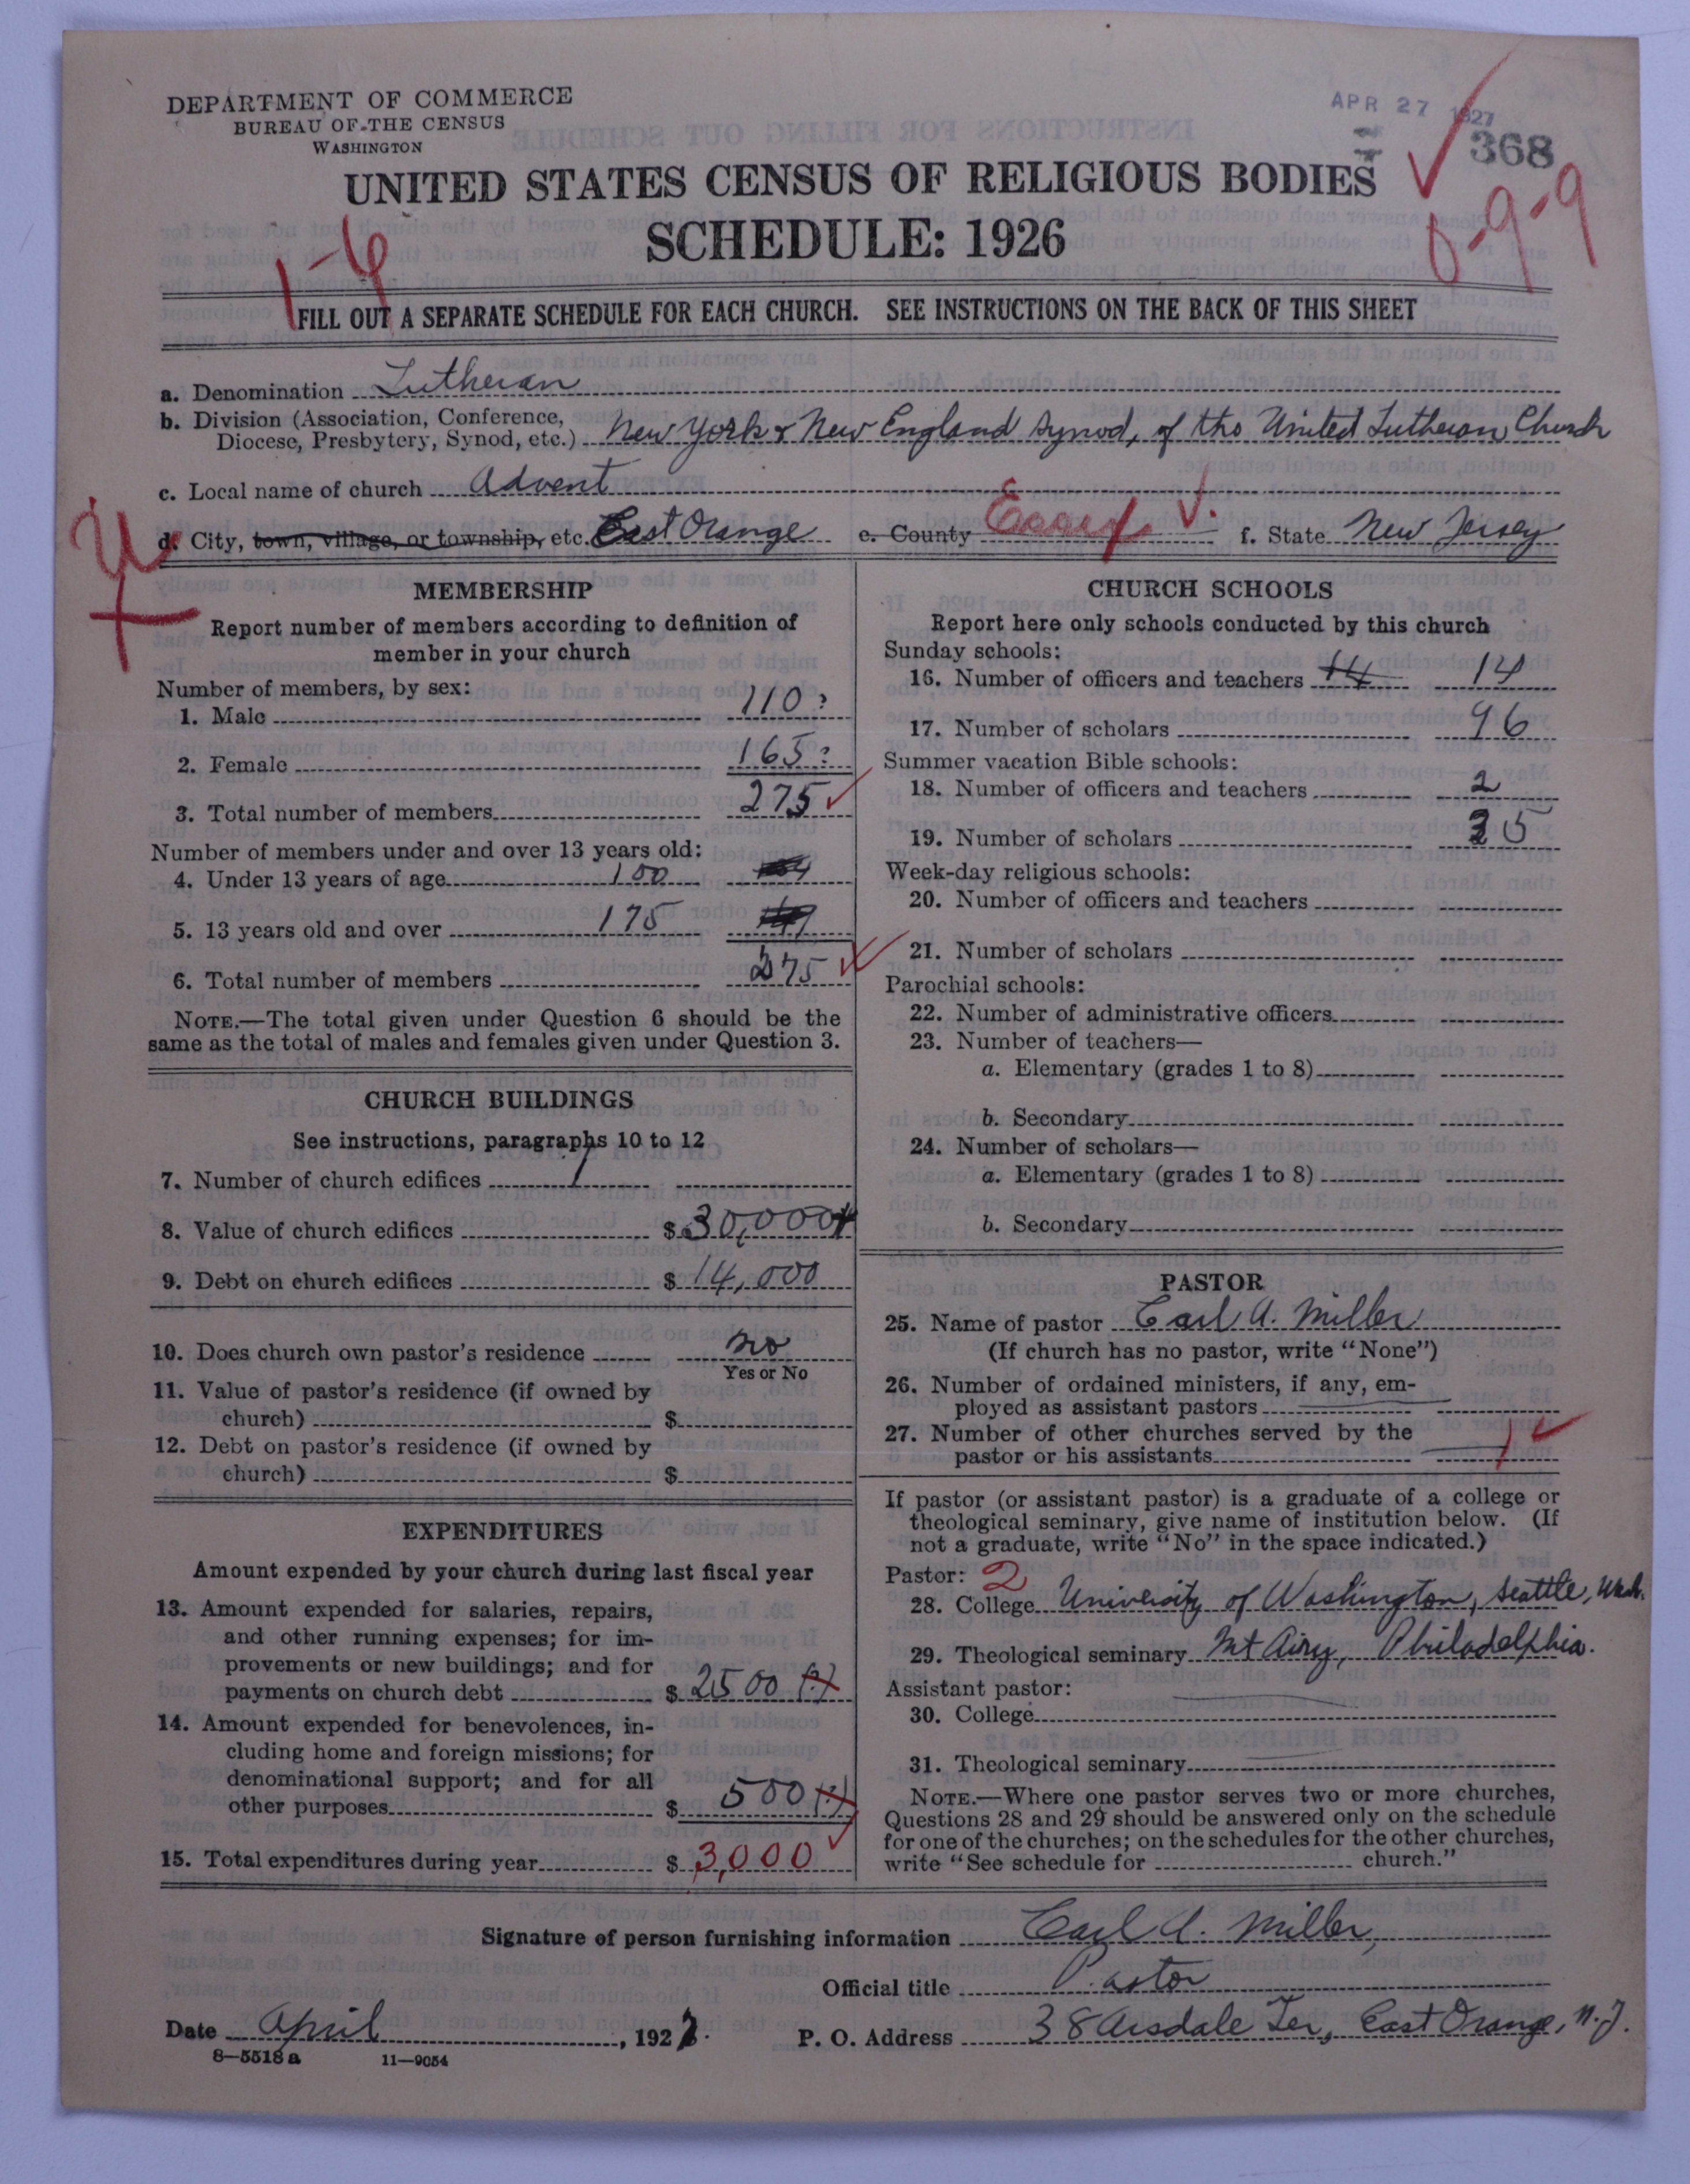 DEPARTMENT OF COMMERCE
BUREAU OF THE CENSUS
WASHINGTON
APR 27 1927
368
UNITED STATES CENSUS OF RELIGIOUS BODIES
SCHEDULE: 1926
0-9-9
1-6
FILL OUT A SEPARATE SCHEDULE FOR EACH CHURCH. SEE INSTRUCTIONS ON THE BACK OF THIS SHEET
a. Denomination Lutheran
b. Division (Association, Conference, Diocese, Presbytery, Synod, etc.) New York & New England Synod, of the United Lutheran Church
c. Local name of church Advent
d. City, town, village, or township, etc. East Orange e. County Essex f. State New Jersey
MEMBERSHIP
Report number of members according to definition of
member in your church
Number of members, by sex:
1. Male 110?
2. Female 165?
3. Total number of members 275
Number of members under and over 13 years old:
4. Under 13 years of age 100
5. 13 years old and over 175
6. Total number of members 275
NOTE.—The total given under Question 6 should be the
same as the total of males and females given under Question 3.
CHURCH BUILDINGS
See instructions, paragraphs 10 to 12
7. Number of church edifices 1
8. Value of church edifices $ 30,000
9. Debt on church edifices $ 14,000
10. Does church own pastor's residence no
Yes or No
11. Value of pastor's residence (if owned by
church) $
12. Debt on pastor's residence (if owned by
church) $
EXPENDITURES
Amount expended by your church during last fiscal year
13. Amount expended for salaries, repairs,
and other running expenses; for im-
provements or new buildings; and for
payments on church debt $ 2500 (?)
14. Amount expended for benevolences, in-
cluding home and foreign missions; for
denominational support; and for all
other purposes $ 500 (?)
15. Total expenditures during year $ 3,000
CHURCH SCHOOLS
Report here only schools conducted by this church
Sunday schools:
16. Number of officers and teachers 14 14
17. Number of scholars 96
Summer vacation Bible schools:
18. Number of officers and teachers 2
19. Number of scholars 35
Week-day religious schools:
20. Number of officers and teachers
21. Number of scholars
Parochial schools:
22. Number of administrative officers
23. Number of teachers—
a. Elementary (grades 1 to 8)
b. Secondary
24. Number of scholars—
a. Elementary (grades 1 to 8)
b. Secondary
PASTOR
25. Name of pastor Carl A. Miller
(If church has no pastor, write "None")
26. Number of ordained ministers, if any, em-
ployed as assistant pastors
27. Number of other churches served by the
pastor or his assistants 1
If pastor (or assistant pastor) is a graduate of a college or
theological seminary, give name of institution below. (If
not a graduate, write "No" in the space indicated.)
Pastor: 2
28. College University of Washington, Seattle, Wash.
29. Theological seminary Mt Airy, Philadelphia.
Assistant pastor:
30. College
31. Theological seminary
NOTE.—Where one pastor serves two or more churches,
Questions 28 and 29 should be answered only on the schedule
for one of the churches; on the schedules for the other churches,
write "See schedule for church."
Signature of person furnishing information Carl A. Miller,
Official title Pastor
Date April, 1927. P. O. Address 38 Arsdale Ter, East Orange, N.J.
8—5518 a 11—9054